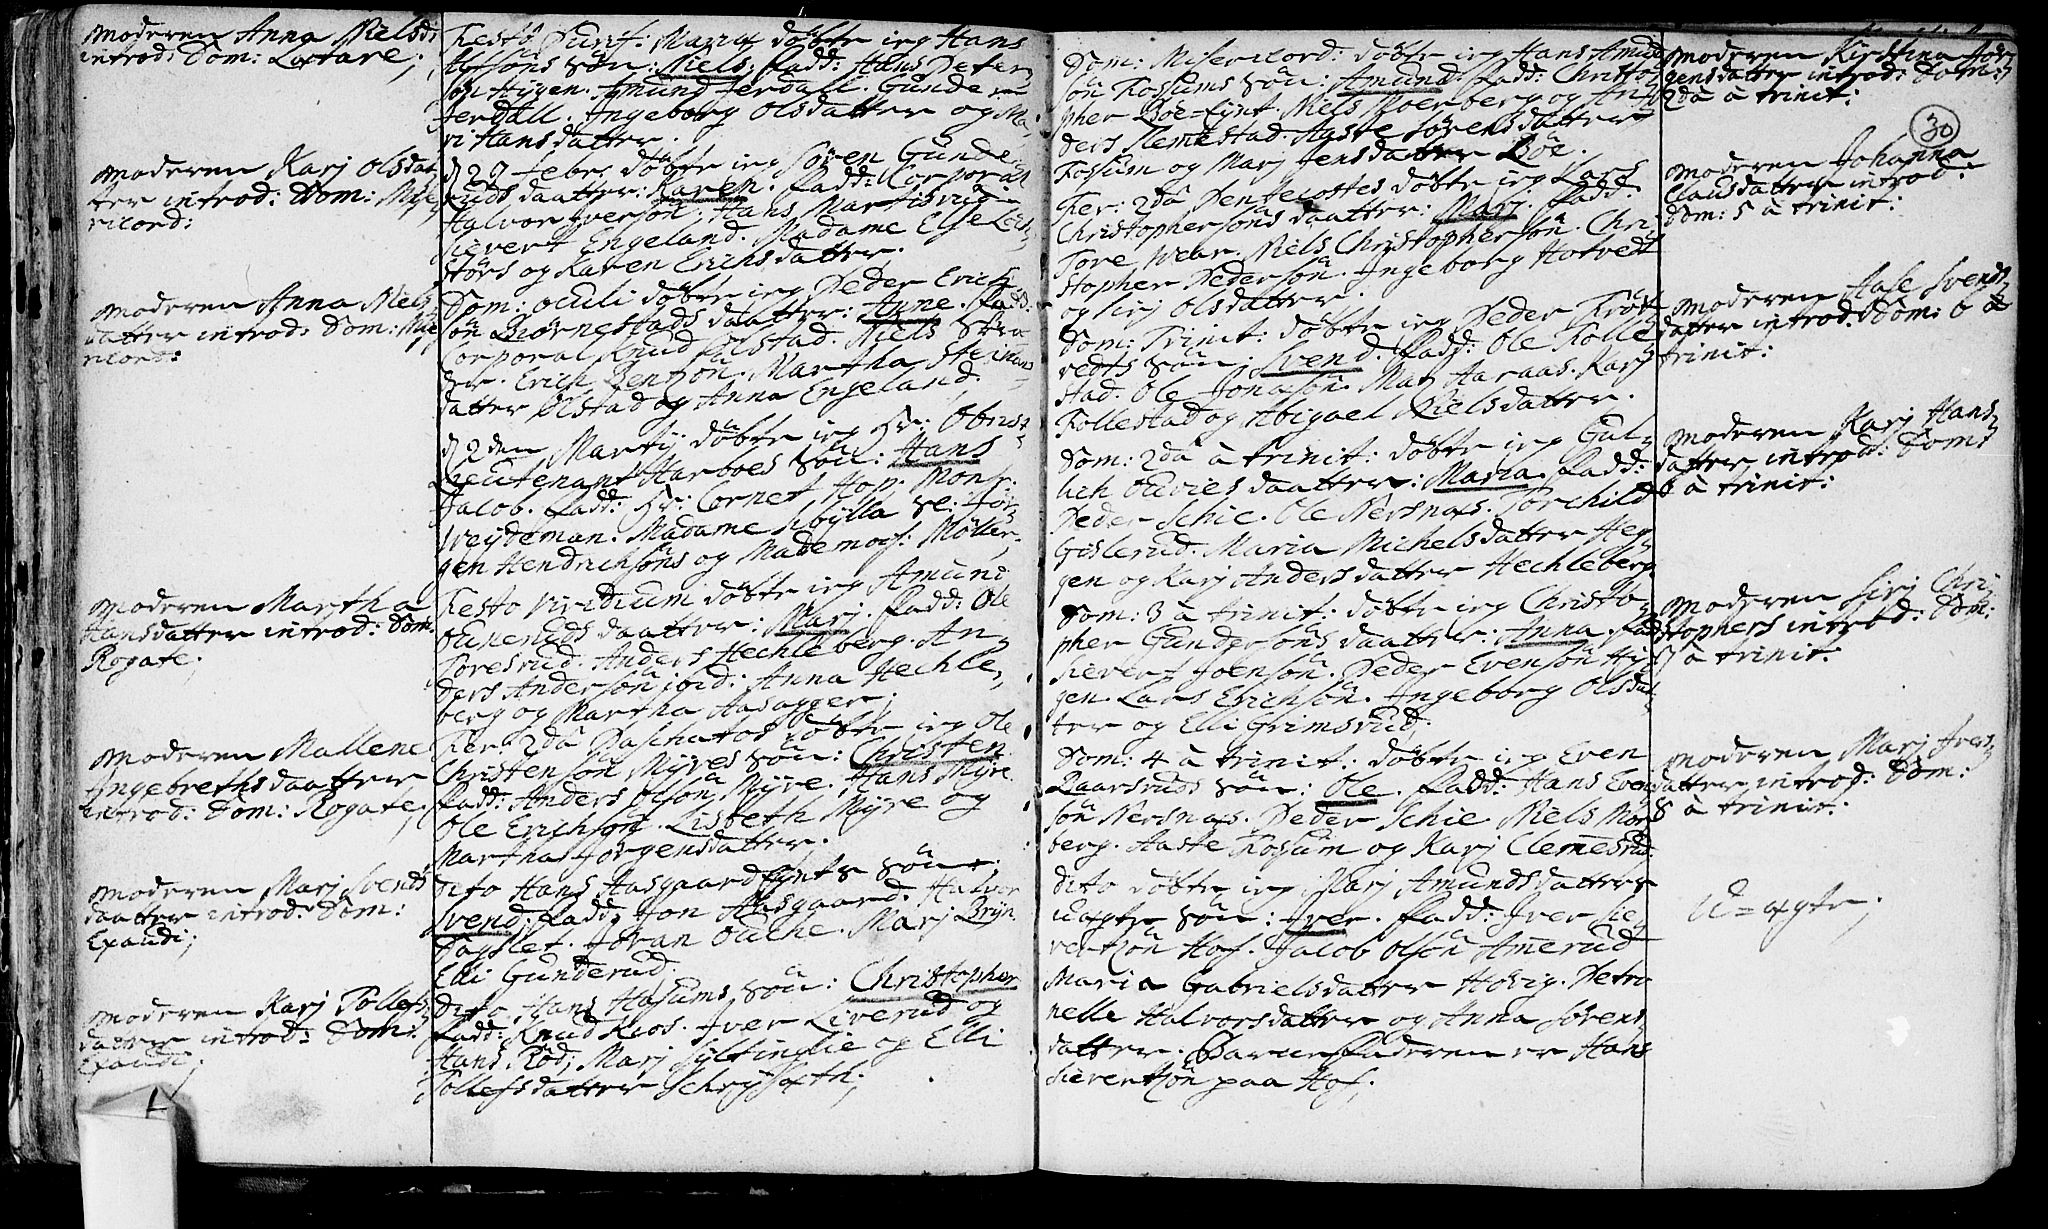 Moderen Anna Nielsd:
introd: Dom: Lætare;
Moderen Karj Olsdat
ter introd: Dom: Mise
ricord:
Moderen Anna Niels
datter introd: Dom: Mise
ricord:
Moderen Martha
Hansdatter introd: Dom.
Rogate;
Moderen Mallene
Ingebrethsdaatter
introd: Dom: Rogate;
Moderen Marj Svends
daatter introd: Dom:
Exaudi;
Moderen Karj Tollefs
datter introd: Dom:
Exaudi;
Festo Purif: Mariæ döbte ieg Hans
söns sön: Niels. fadd: Hans Peter
sön Hijgen. Amund Jerdall. Gunder
Jerdall. Ingeborg Olsdatter og Ma
ri Hansdatter.
d 22 Febr. döbte ieg Sören Gunde
ruds daatter: Karen. fadd: Corporal
Halvor Iversön. Hans Martisvig
Sievert Engeland. Madame Else
störs og Karen Erichsdatter.
Dom: oculi döbte ieg Peder Erich
sön Biörnestads daatter: Anne. fadd:
Corporal Knud Olstad. Niels
der. Erich Bentsön. Martha Steinars
datter Olstad og Anna Engeland.
d 2den Martij döbte ieg Hr: Obrist
Lieutenant Harboes sön: Hans
Jacob. fadd: Hr: Cornet Hop. Mons:
Weijdeman: Madame Sibylla Sl: Jör
gen Hendrichsöns og Mademois: Möller.
Festo Viridium döbte ieg Amund
ouneruds daatter: Marj. fadd: Ole
Toresrud. Anders Hechleberg. An
ders Andersön ibid: Anna Hechle
berg og Martha Aasagger;
Fer: 2dâ Paschatos döbte ieg Ole
Christensön Myres sön: Christen
fadd: Anders Olsön Myre. Hans Myre
Ole Erichsön. Lisbeth Myre og
Martha Jörgensdatter.
dito Hans Aasgaardeynts sön:
Svend. fadd: Jon Aasgaard. Halvor
Dagslet. Joran ouche. Marj Bryn
Elli Gunderud.
dito Hans Hasums sön: Christopher
fadd: Knud Kios. Iver Liverud og
Hans Röd, Marj Syltinglie og Elli
Tollefsdatter Schryset;
Dom: Misericord: döbte ieg Hans Amund
sön Fossums sön: Amund. fadd: Christo
pher Böe-Eynt. Niels Moerberg og An
ders Klemestad. Aaste Sörensdatter
Fossum og Marj Jensdatter Böe.
Fer: 2dâ Pentecostes döbte ieg Lars
Christophersöns daatter: Marj. fadd:
Tore Wear. Niels Christophersön. Chri
stopher Pedersön. Ingeborg Hotvedt
og Sirj Olsdatter.
Dom: Trinit: döbte ieg Peder Tröt
vedts sön: Svend. fadd: Ole Folle
stad. Ole Jonasön. Marj Aaraas. Karj
Follestad og Abigael Nielsdatter.
Dom: 2dâ â trinit: döbte ieg Gul
lich ouries daatter: Maria. fadd:
Peder Schie. Ole Nersnæs. Torchild
Gislerud. Maria Michelsdatter Heg
gen og Karj Andersdatter Hechleberg
Dom: 3 â trinit: döbte ieg Christo
pher Gundersöns daatter: Anna. fad
Sievert Joensön. Peder Evensön Hij
gen. Lars Erichsön. Ingeborg Olsdat
ter og Elli Grimsrud.
Dom: 4 â trinit: döbte ieg Even
Baarsruds sön: Ole. fadd: Hans Even
sön Nersnæs. Peder Schie Niels Mör
berg. Aaste Fossum og Karj Clemesrud.
dito döbte ieg Marj Amundsdatters
uægte sön: Iver. fadd: Iver Sie
vertsön Hof. Jacob Olsön Amerud
Maria Gabrielsdatter Hövig. Petro
nelle Halvorsdatter og Anna Sörens
datter. Barne faderen er Hans
Sievertsön paa Hof;
30
Moderen Kirstina Jör
gensdatter introd: Dom:
2dâ â trinit:
Moderen Johanna
Clausdatter introd:
Dom: 5 â trinit:
Moderen Aase Svends
datter introd: Dom: 6 â
trinit:
Moderen Karj Hans
datter introd: Dom:
6 â trinit:
Moderen Sirj Chri
stophers introd: Dom:
7 â trinit:
Moderen Marj Ivers
datter introd: Dom:
8 â trinit:
U=ægte;